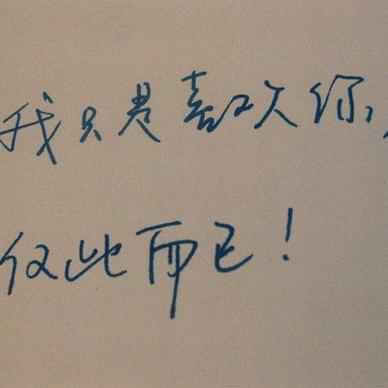 我只是喜欢你,
仅此而已!